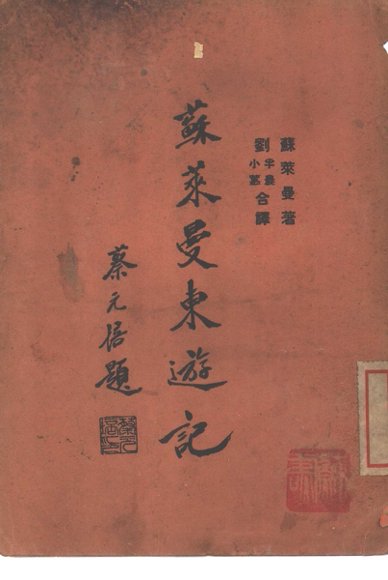 蘇萊曼著
劉半農小蕙合譯
蘇萊曼東遊記
蔡元培題